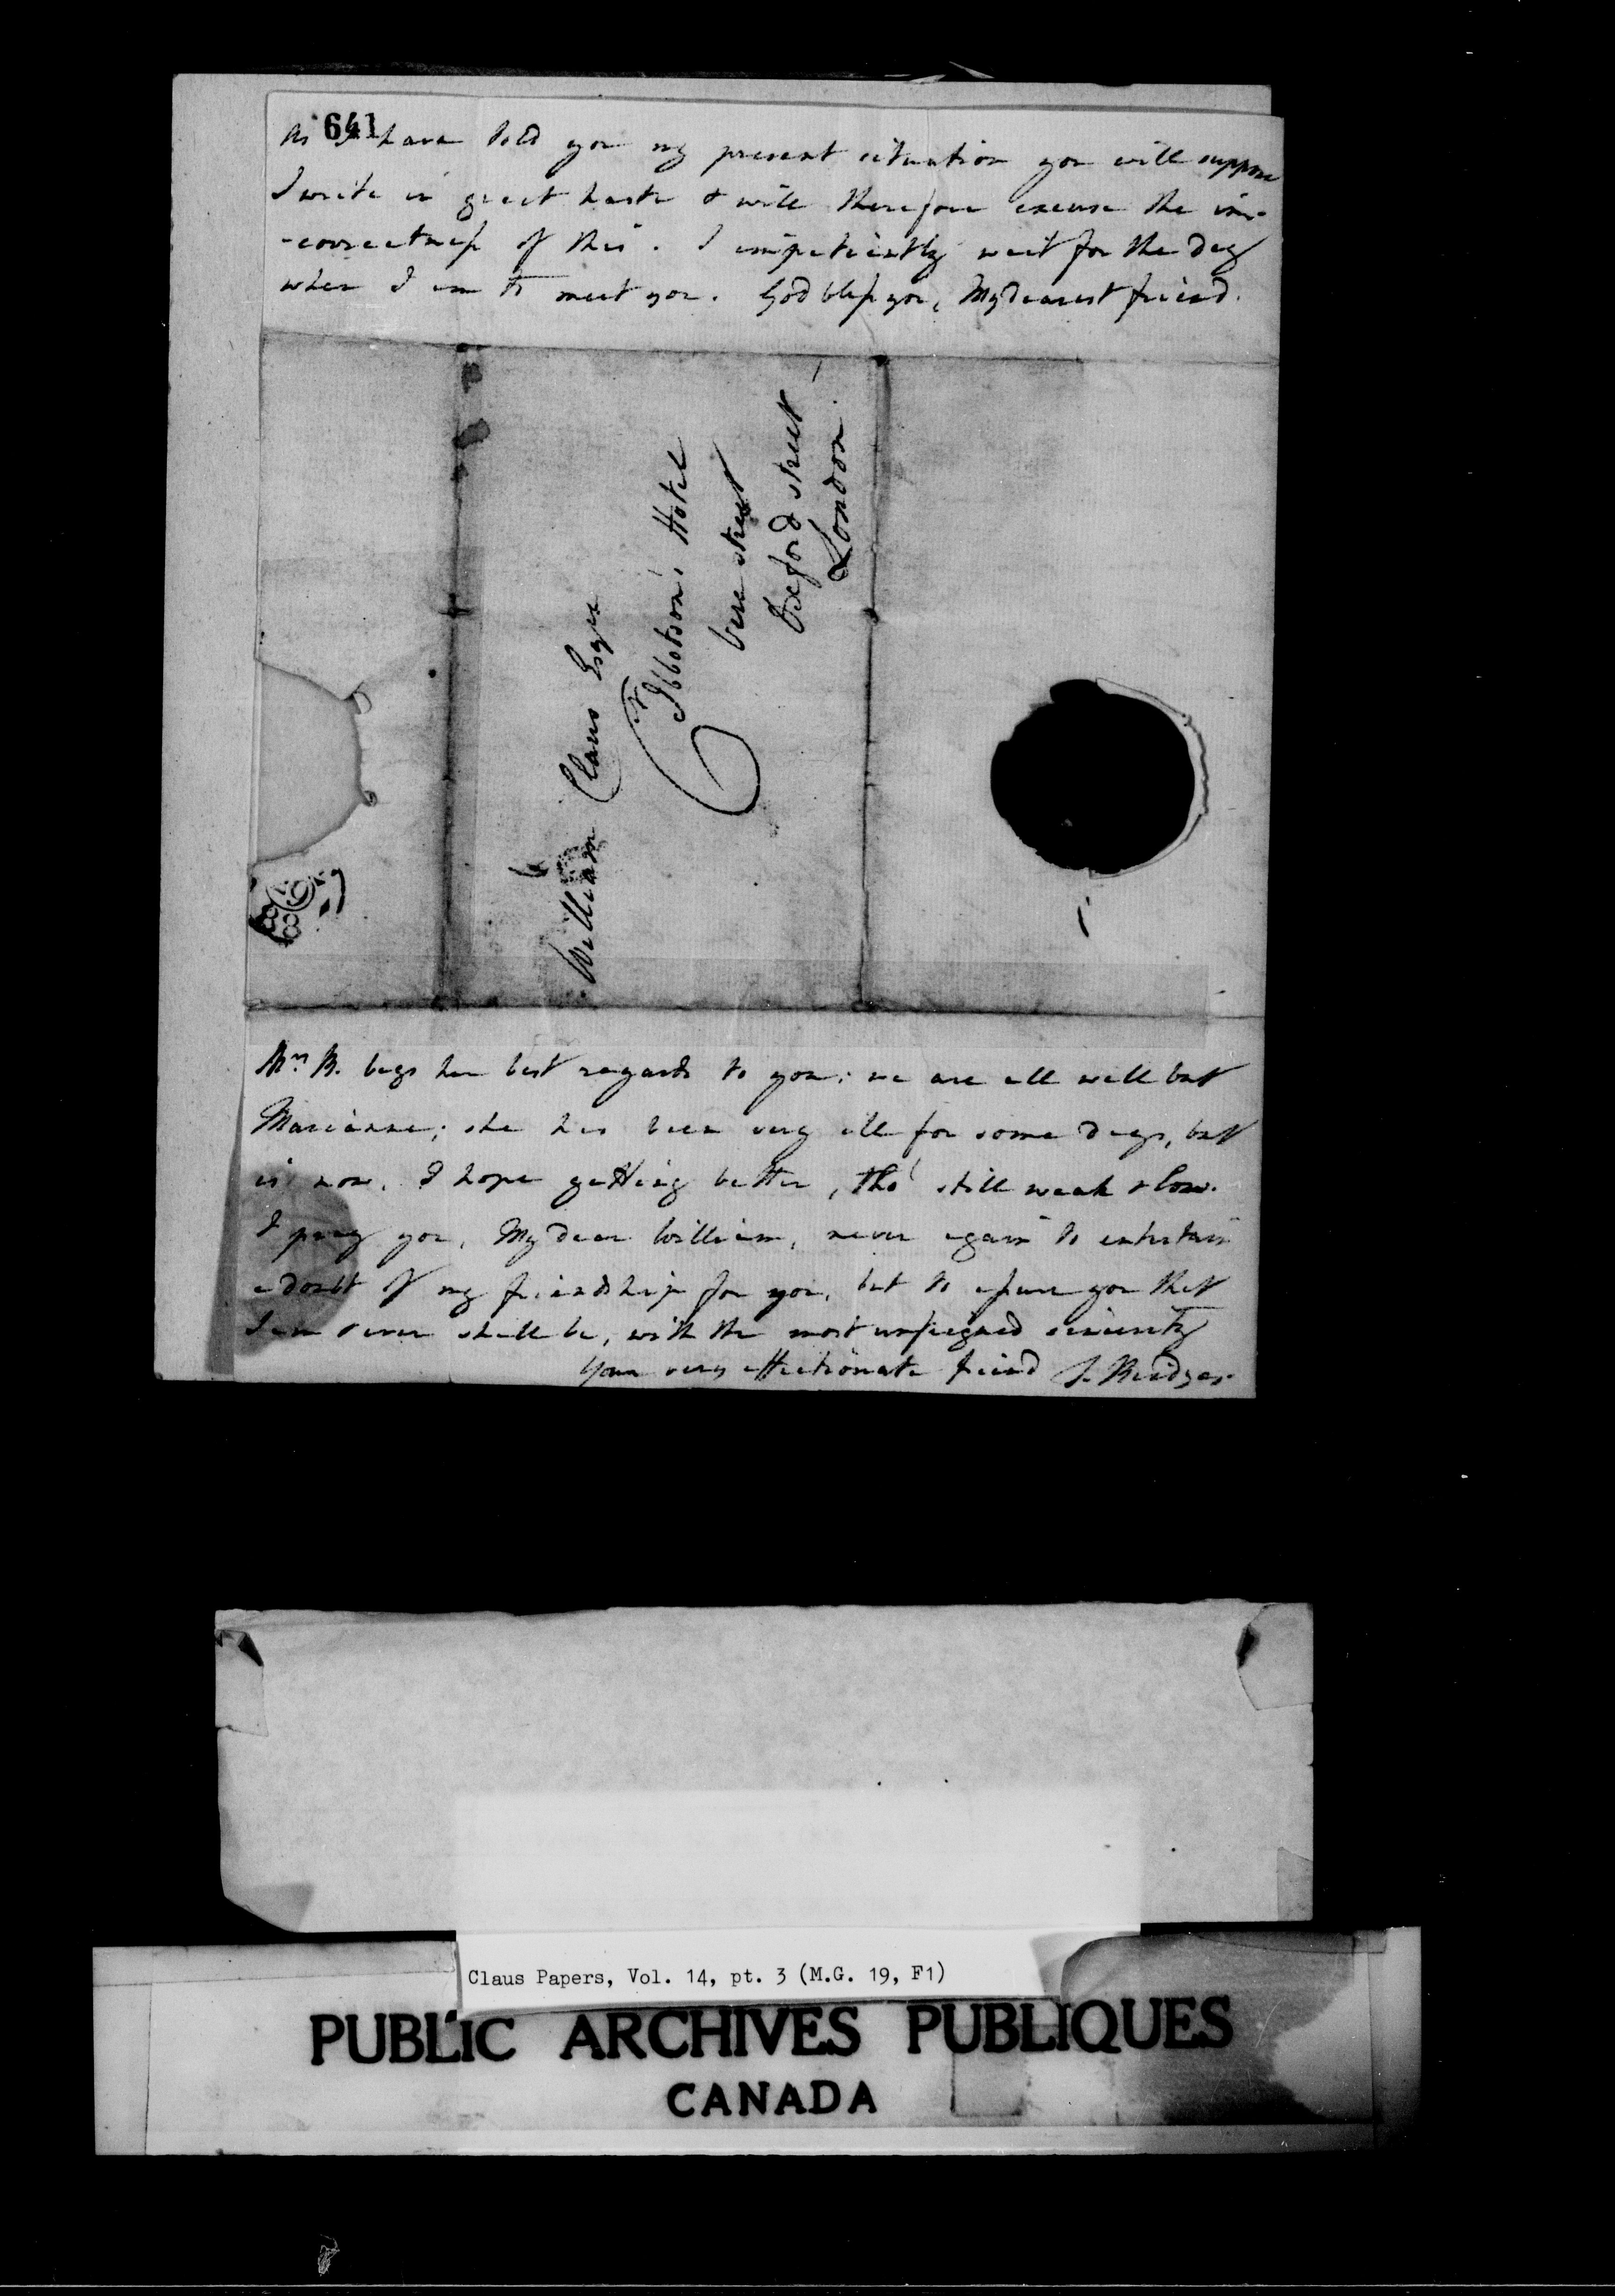 641
As I have told you my present situation you will suppose
I write in great haste & will therefore excuse the in-
-correctness of this. I impatiently wait for the day
when I am to meet you. God bless you, My dearest friend.
William Claus Esqr
Ibbotson's Hotel
Vere street
Oxford street
London.
Mrs. B. begs her best regards to you: we are all well but
Marianne; she has been very ill for some days, but
is now, I hope getting better, tho' still weak & low.
I pray you, My dear William, never again to entertain
a doubt of my friendship for you, but to assure you that
I am & ever shall be, with the most unfeigned sincerity
Your very affectionate friend J. Bridges.
Claus Papers, Vol. 14, pt. 3 (M.G. 19, F1)
PUBLIC ARCHIVES PUBLIQUES
CANADA